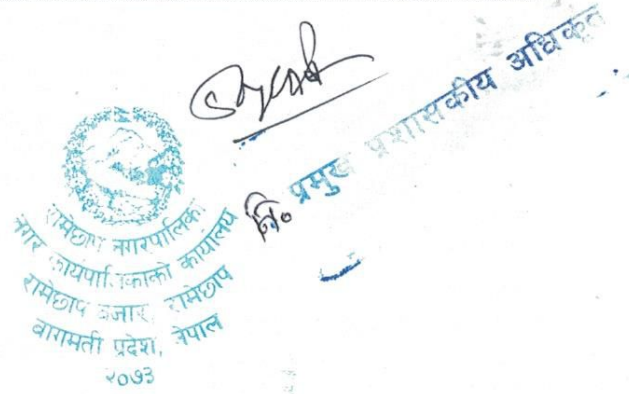 नि. प्रमुख प्रशासकीय अधिकृत
रामेछाप नगरपालिका
नगर कार्यपालिकाको कार्यालय
रामेछाप बजार, रामेछाप
वागमती प्रदेश, नेपाल
२०७३